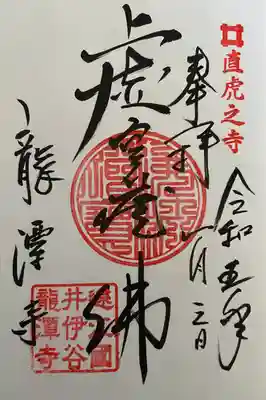 直虎之寺
令和五年
月三日
奉拝
虚空蔵佛
龍潭寺
遠江國
井伊谷
龍潭寺